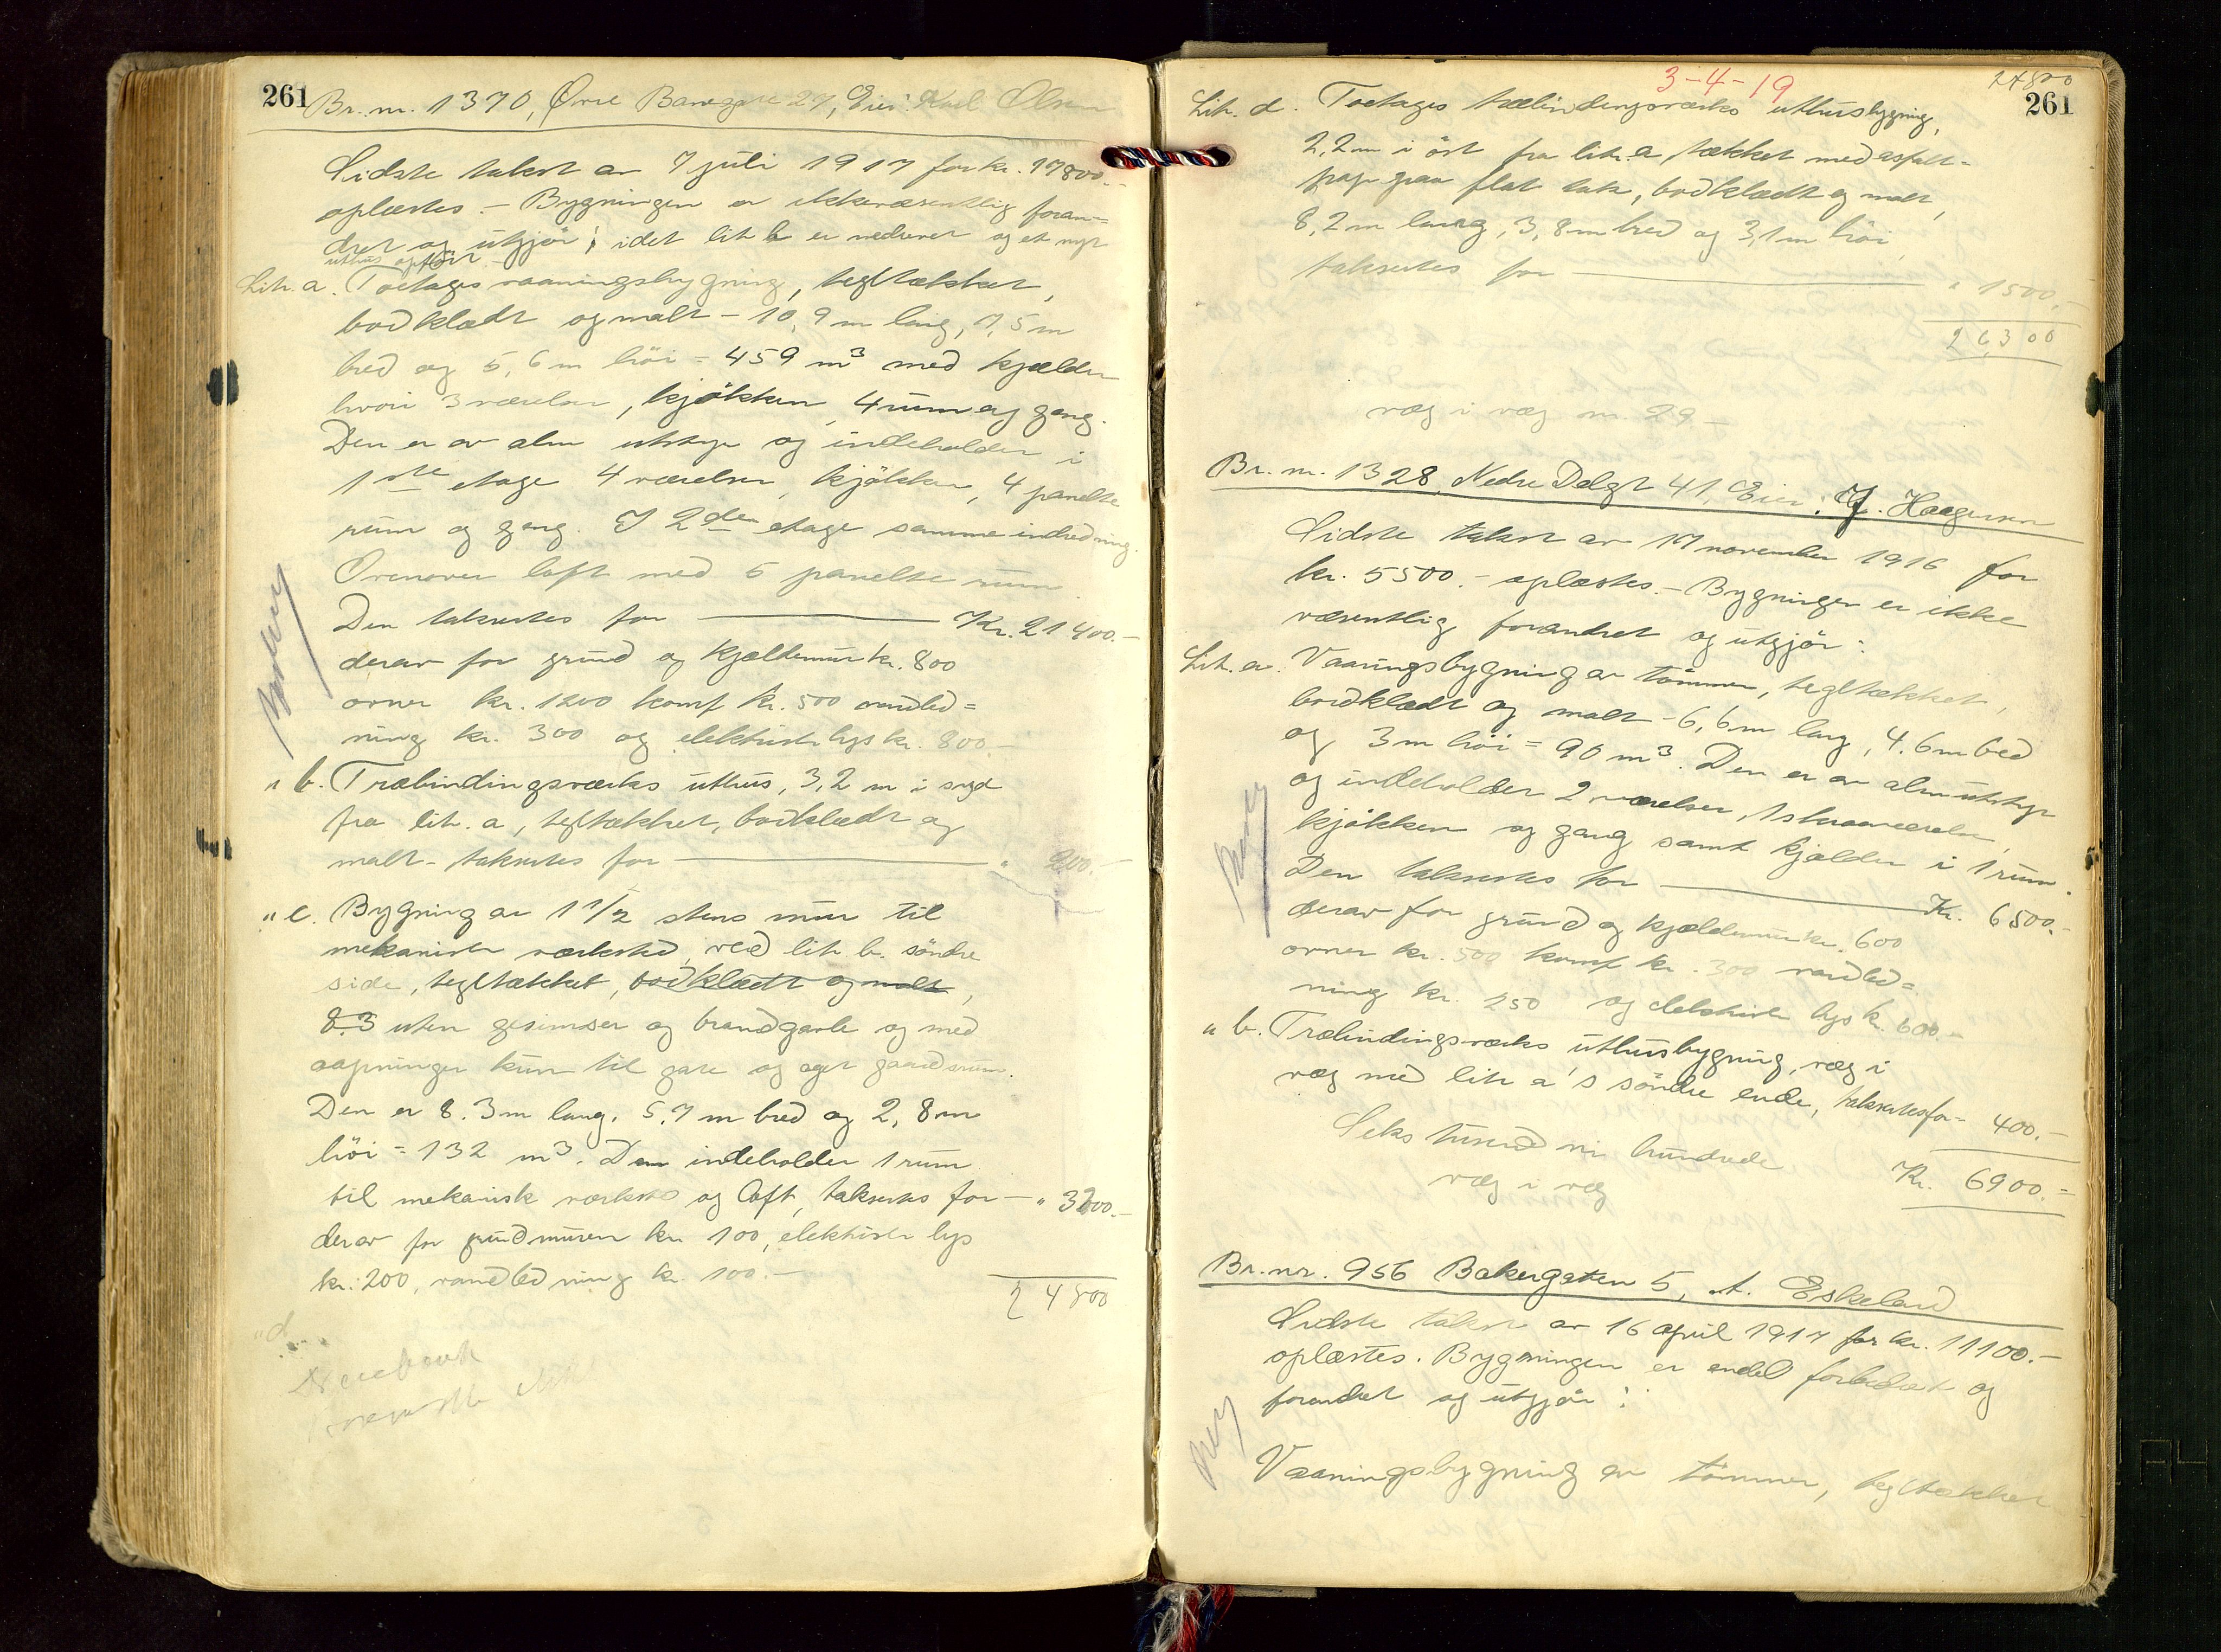 261
Br. nr. 1370, Øvre Banegate 27, Eier: Karl Olsen
Sidste takst av 7 juli 1917 for kr. 17800.-
oplæstes. - Bygningen er ikke væsentlig foran=
dret og utgjør; idet lit b er nedrevet og et nyt
uthus opført
Lit. a. Toetages vaaningsbygning, tegltækket,
bordklædt og malt - 10,9 m lang, 7,5 m
bred og 5,6 m höi = 459 m³ med kjælder
hvori 3 værelser, kjökken, 4 rum og gang.
Den er av alm utstyr og indeholder i
1ste etage 4 værelser, kjökken, 4 panelte
rum og gang. I 2den etage samme indredning.
Ovenover loft med 5 panelte rum.
Den takseres for Kr. 21400.-
derav for grund og kjældermur kr. 800
ovner kr. 1200 komf kr. 500 vandled=
ning kr. 300 og elektrisk lys kr. 800.-
" b. Træbindingsværks uthus, 3,2 m i syd
fra lit. a, tegltækket, bordklædt og
malt - takseres for " 200.-
" c. Bygning av 1 1/2 stens mur til
mekanisk verksted, ved lit. b. söndre
side, tegltækket, bordklædt og malt,
8.3 uten gesimser og brandgavle og med
aapninger kun til gate og eget gaardsrum.
Den er 8.3 m lang, 5,7 m bred og 2,8 m
höi = 132 m³. Den indeholder 1 rum
til mekanisk verksted og loft, takseres for - " 3200.-
derav for grundmuren kr 100, elektrisk lys
kr. 200, vandledning kr. 100.-
24800
" d.
3-4-19
24800
261
Lit. d. Toetages træbindingsværks uthusbygning,
2,2 m i öst fra lit. a, tækket med asfalt=
pap paa flat tak, bordklædt og malt,
8,2 m lang, 3,8 m bred og 3,1 m höi
takseres for " 1500.-
26300
væg i væg nr. 29 -
Br. nr. 1328, Nedre Dalgt 41, Eier: J. Haagensen
Sidste takst av 17 november 1916 for
kr. 5500.- oplæstes. - Bygningen er ikke
væsentlig forandret og utgjör:
Lit. a. Vaaningsbygning av tömmer, tegltækket,
bordklædt og malt - 6,6 m lang, 4.6 m bred
og 3 m höi = 90 m³. Den er av alm utstyr
og indeholder 2 værelser, 1 skraaværelse,
kjökken og gang samt kjælder i 1 rum.
Den takseres for Kr. 6500.-
derav for grund og kjældermur kr. 600
ovner kr. 500 komf kr. 300 vandled=
ning kr. 250 og elektrisk lys kr. 600.-
" b. Træbindingsværks uthusbygning, væg i
væg med lit a's söndre ende, takseres for - 400.-
Seks tusend ni hundrede Kr. 6900.=
væg i væg
Br. nr. 956 Bakergaten 5, A. Eskeland
Sidste takst av 16 april 1917 for kr. 11100.-
oplæstes. Bygningen er endel forbedret og
forandret og utgjör:
Vaaningsbygning av tömmer, tegltækket